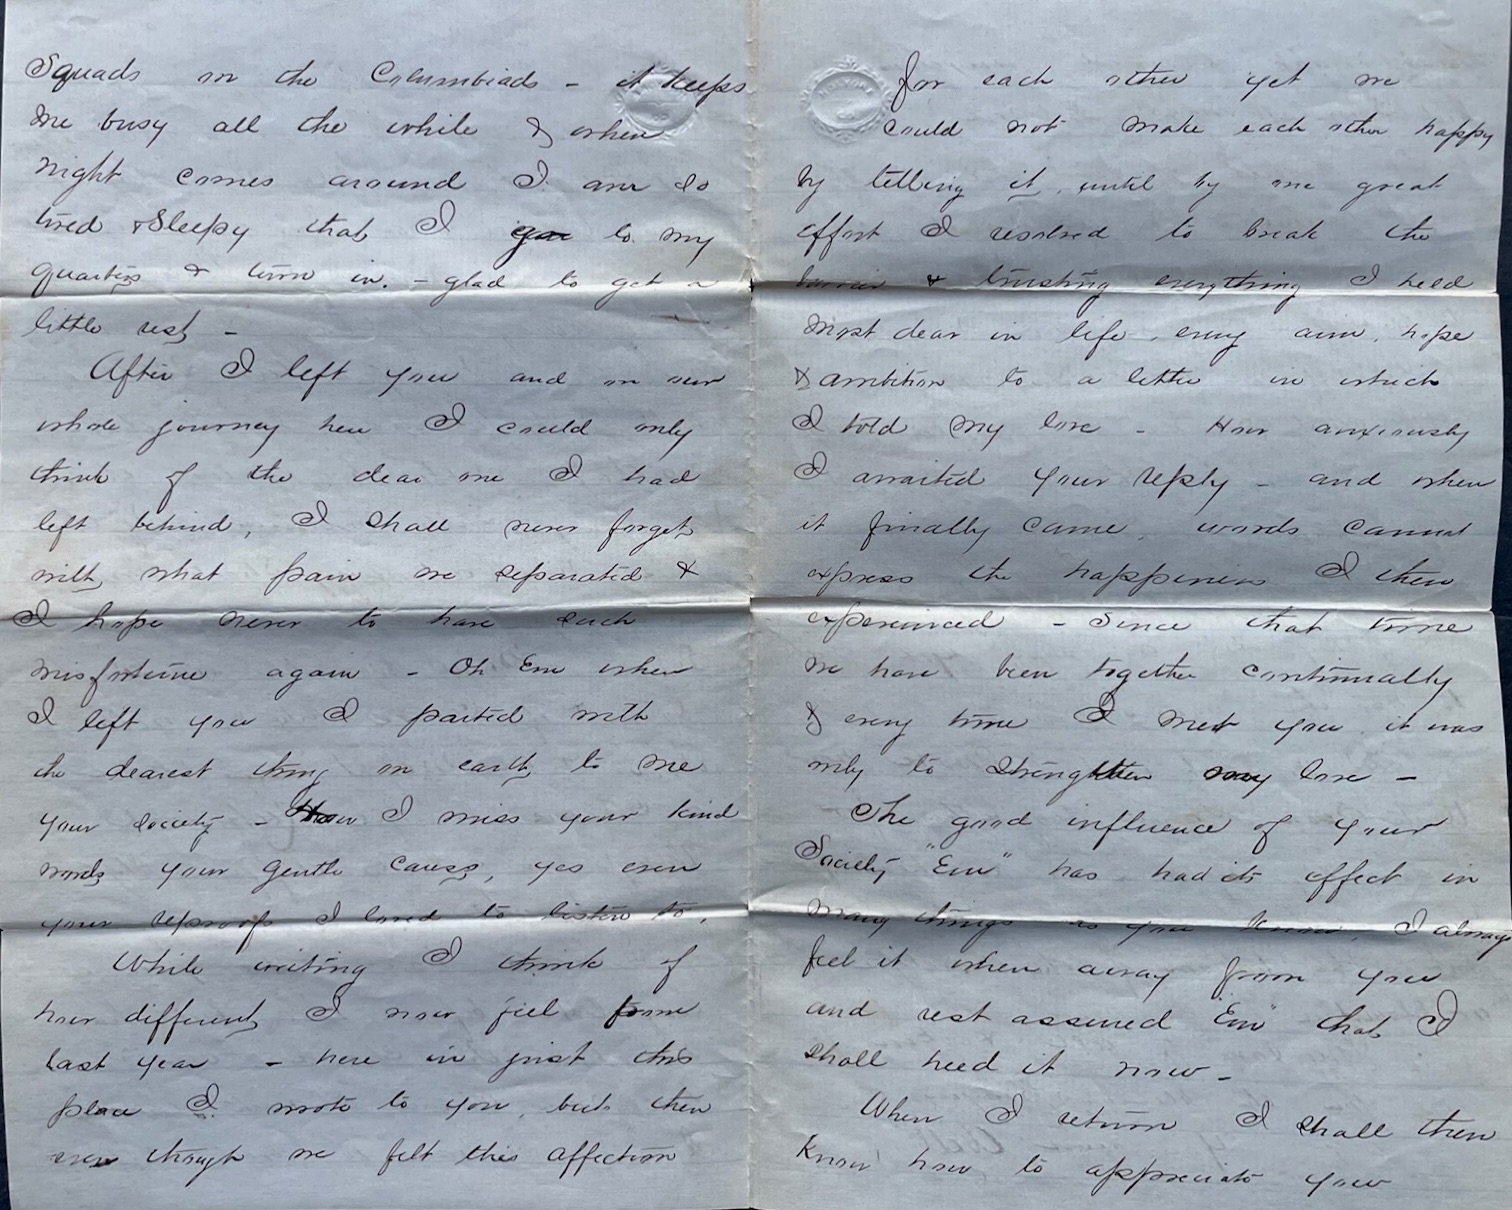 Squads on the Columbiads - it keeps
me busy all the while & when
night comes around I am so
tired & Sleepy that I go to my
quarters & turn in. - glad to get a
little rest -
After I left you and on our
whole journey here I could only
think of the dear one I had
left behind, I shall never forget
with what pain we separated &
I hope never to have such
misfortune again - Oh Em when
I left you I parted with
the dearest thing on earth to me
your society - How I miss your kind
words your gentle caress, yes even
your reproofs I loved to listen to.
While writing I think of
how different I now feel from
last year - here in just this
place I wrote to you, but then
even though we felt this affection
for each other yet we
could not make each other happy
by telling it, until by one great
effort I resolved to break the
barrier & trusting everything I held
most dear in life, every aim, hope
& ambition to a letter in which
I told my love - How anxiously
I awaited your reply - and when
it finally came, words cannot
express the happiness I then
experienced - Since that time
we have been together continually
& every time I met you it was
only to strengthen my love -
The good influence of your
Society "Em" has had its effect in
many things as you know, I always
feel it when away from you
and rest assured "Em" that I
shall heed it now -
When I return I shall then
know how to appreciate you